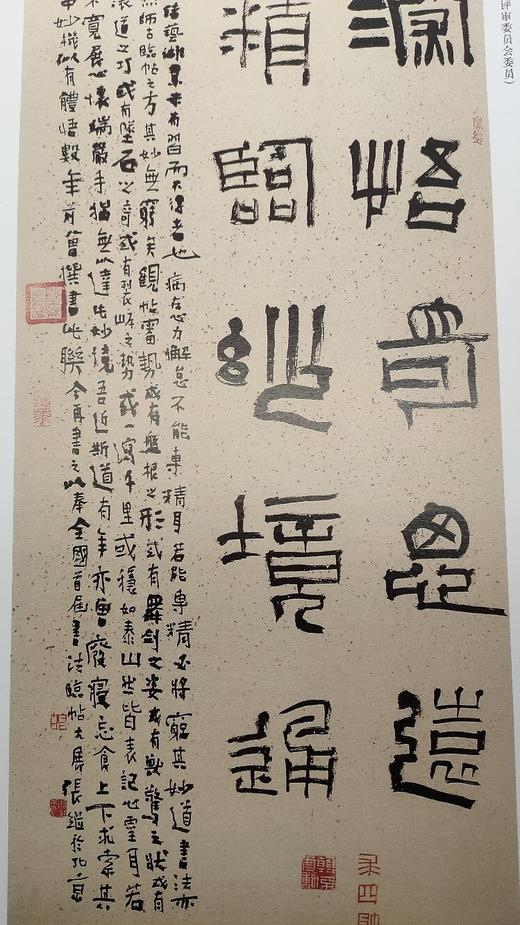 评审委员会委员）
悟思遠
精臨妙境通
藝未有習而不得者也病在心力懈怠不能專精耳若能專精必將窮其妙道書法亦
然師古臨帖之方其妙無窮矣觀帖審勢或有盤根之形或有羅劍之姿或有獸驚之狀或有
道之巧或有墜石之奇或有裂岸之勢或一瀉千里或穩如泰山些皆表記心靈耳若
不寬展心懷端嚴手猶無以達此妙境吾近斯道有年亦曾廢寢忘食上下求索其
中妙機似有體悟數年前曾撰書此聯今再書之以奉全國首屆書法臨帖大展張繼於北京